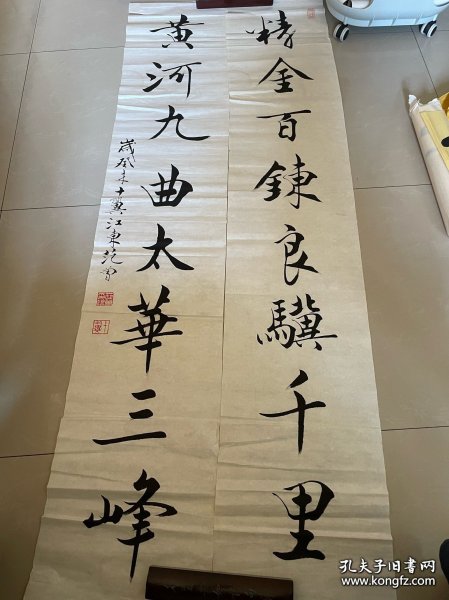 精金百鍊良驥千里
黄河九曲太華三峰
歲癸未十翼江東范曾
孔夫子旧书网
www.kongfz.com